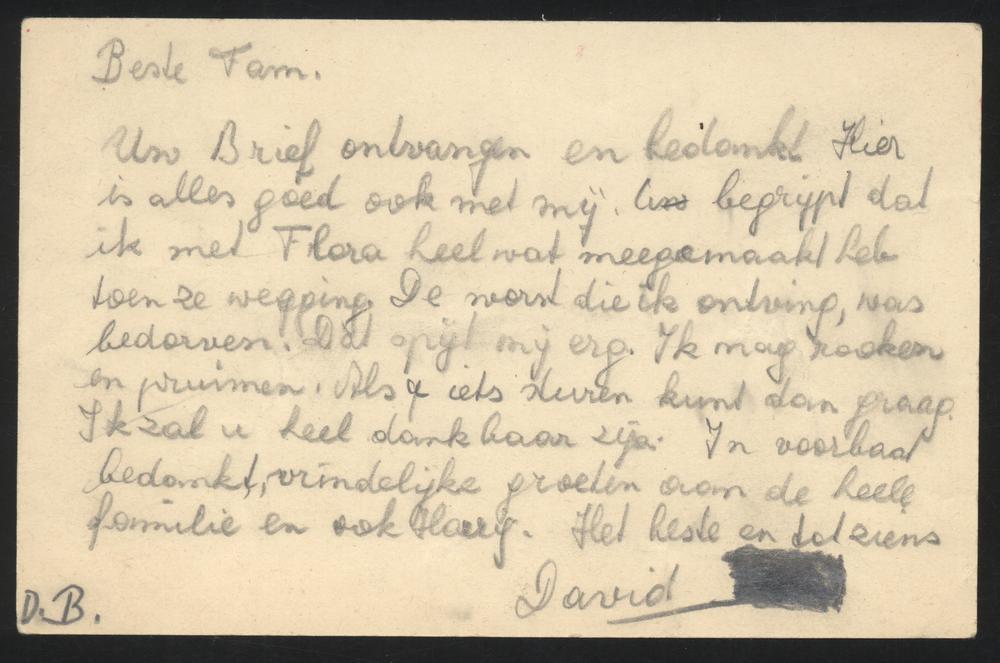 Beste Fam.
Uw Brief ontvangen en bedankt Hier
is alles goed ook met mij. begrijpt dat
ik met Flora heel wat meegemaakt heb
toen ze wegging. De worst die ik ontving, was
bedorven. Dat spijt mij erg. Ik mag rooken
en pruimen. Als iets sturen kunt dan graag.
Ik zal u heel dankbaar zijn. In voorbaat
bedankt, vrindelijke groeten aan de heele
familie en ook Harij. Het beste en tot ziens
David
D.B.